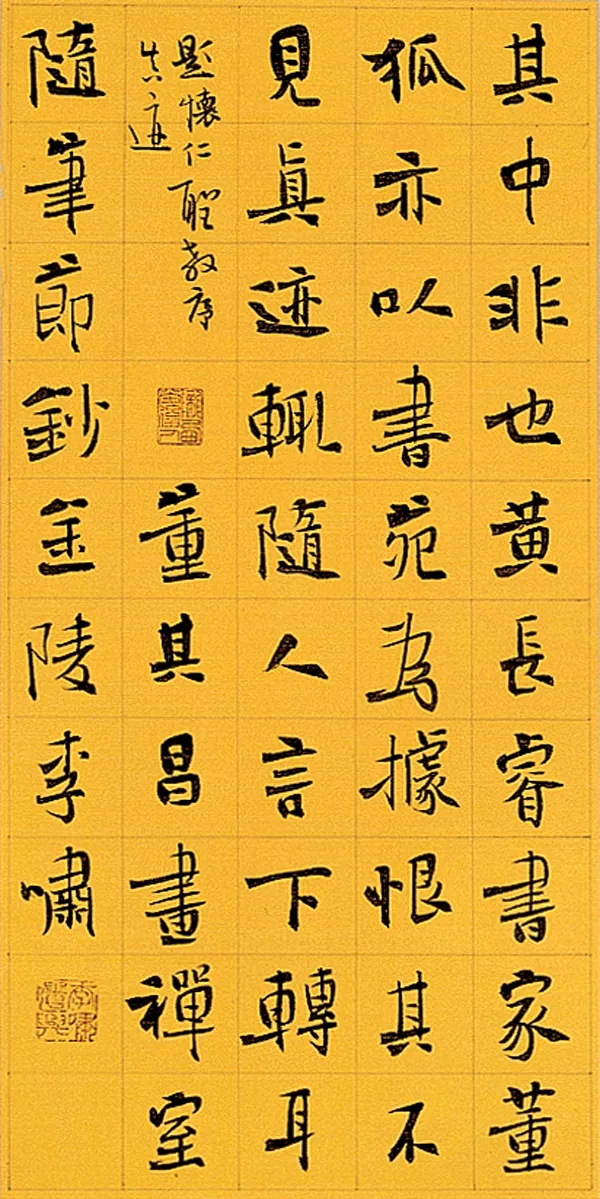 其中非也黃長睿書家董
狐亦以書苑為據恨其不
見眞迹輒隨人言下轉耳
題懷仁聖教序
真迹
董其昌畫禪室
隨筆節鈔金陵李嘯